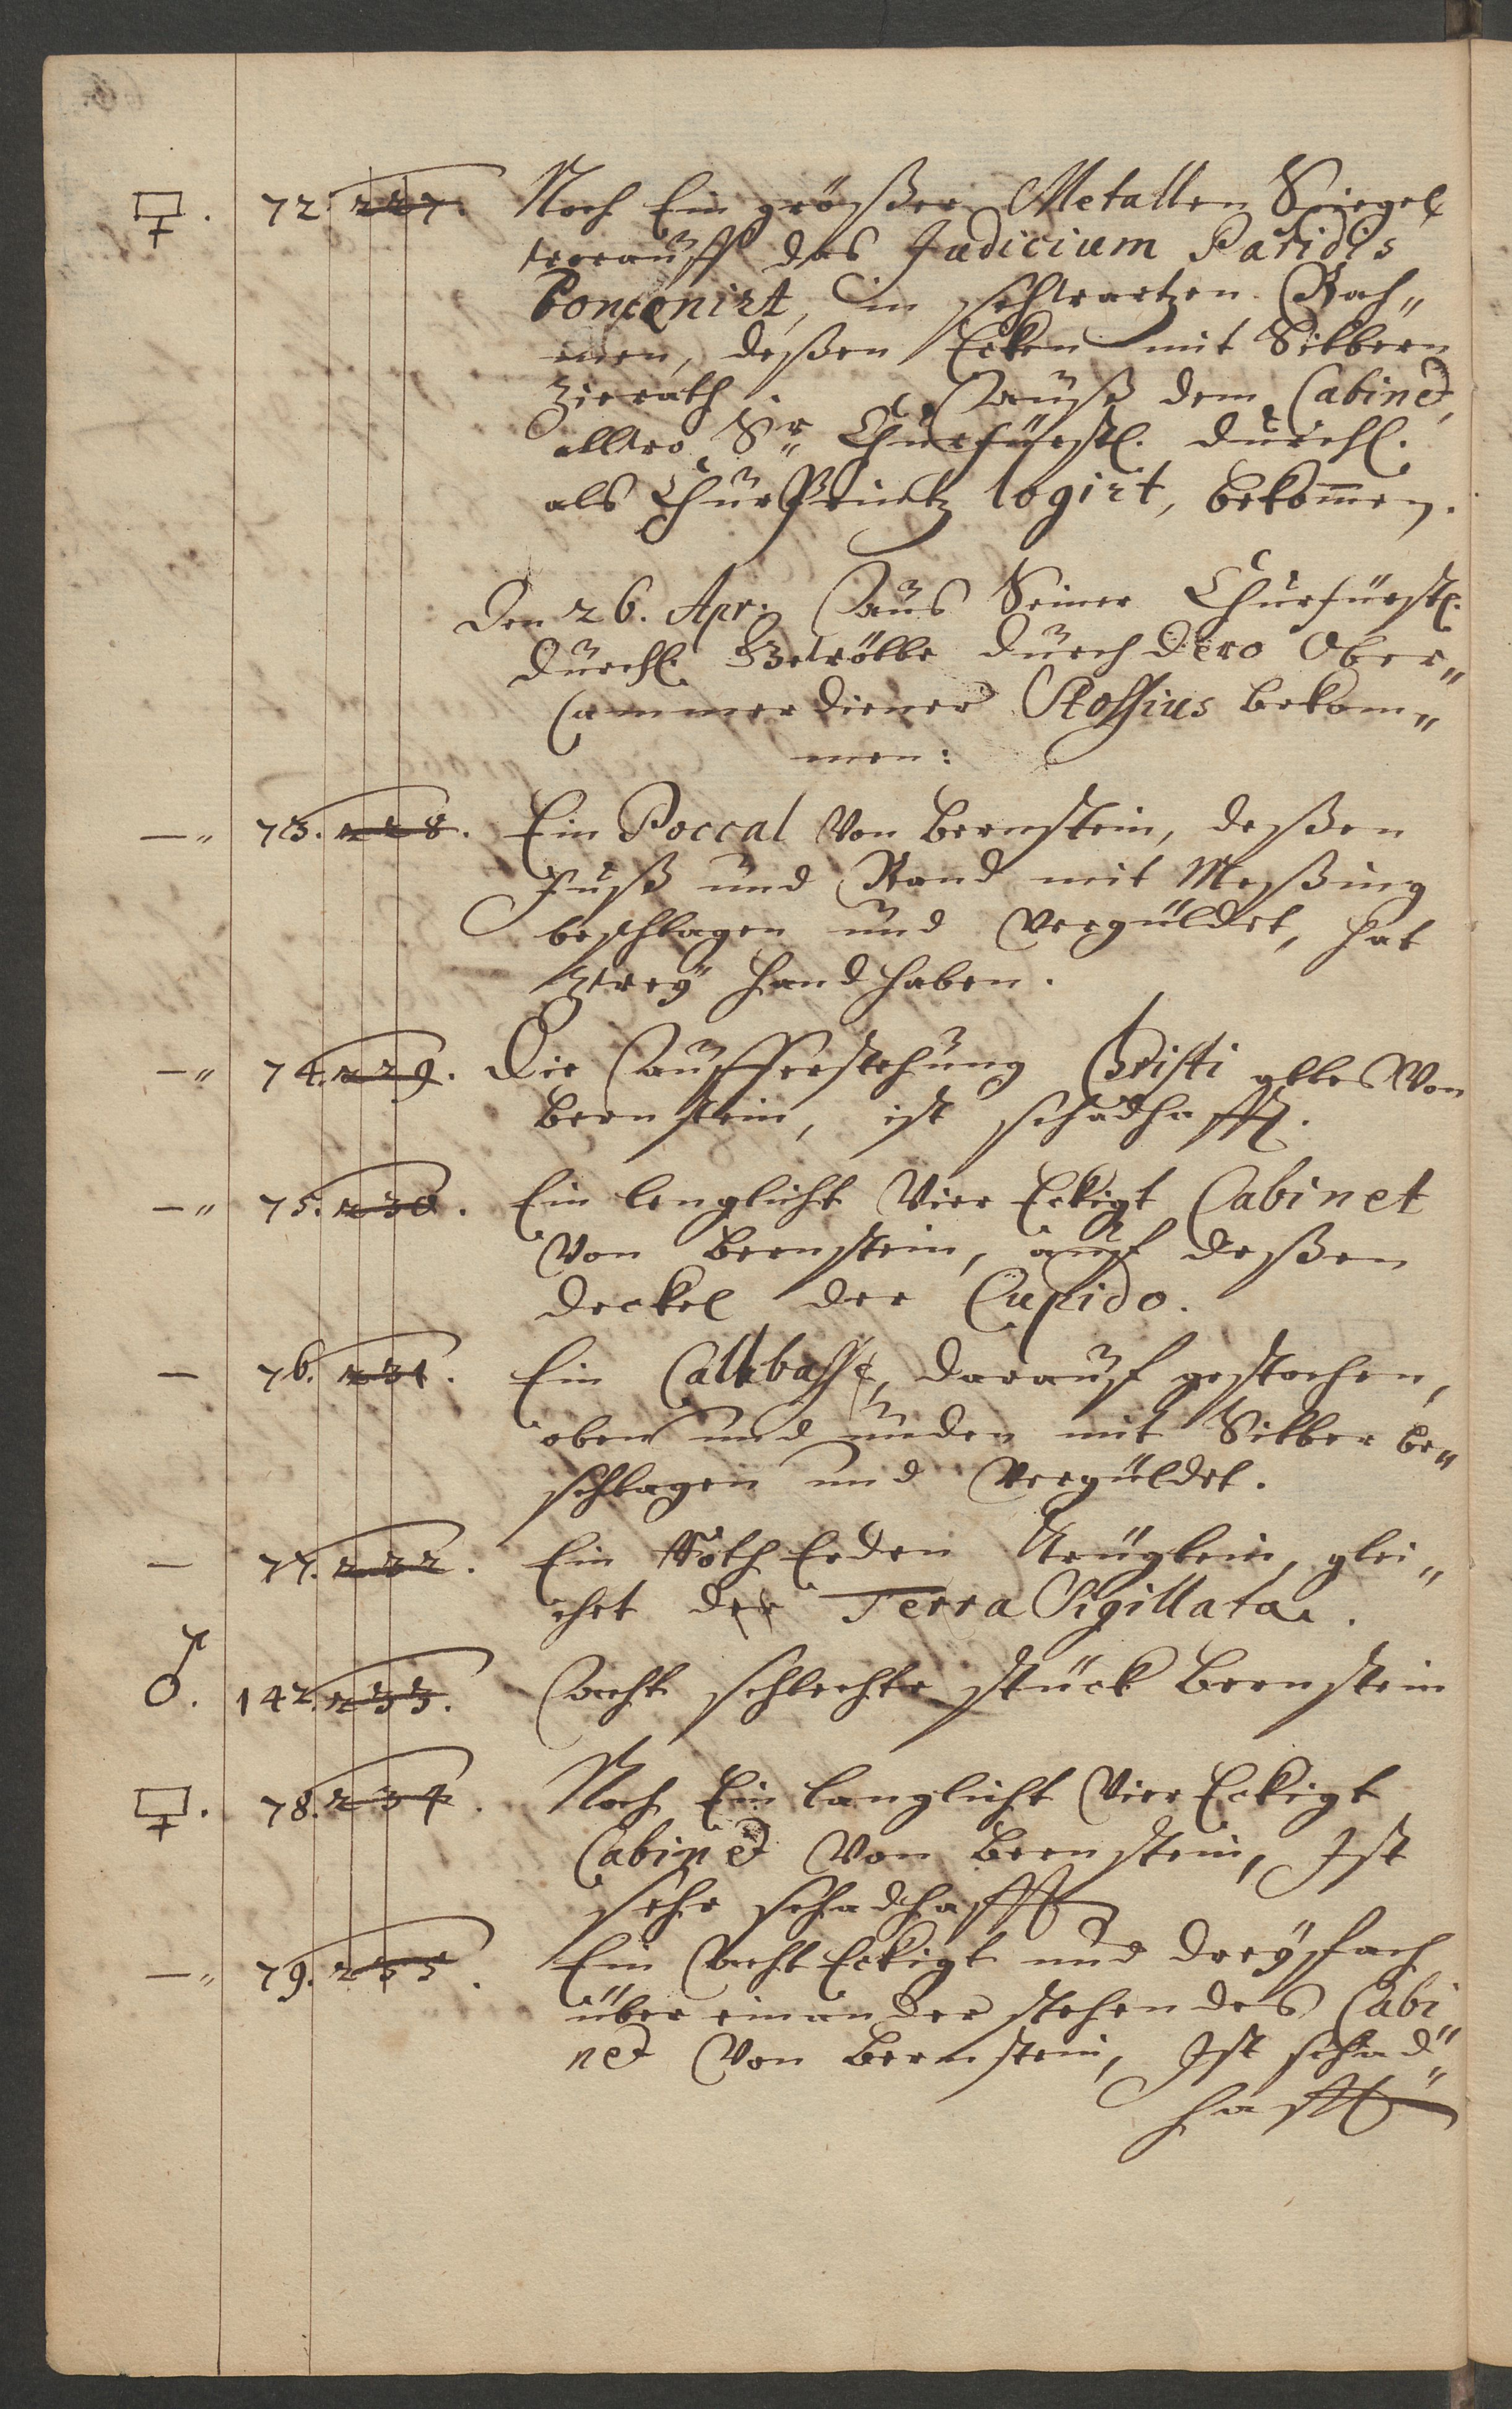 72. 227. Noch Ein größer Metallen Spiegel
worauff das Judicium Paridis
Bonçonirt, in schwartzen Rah„
men, deßen Ecken mit Silbern
Zierath. Auß dem Cabinet,
allwo Sr. Churfürstl. Durchl.
als ChurPrintz logirt, bekom̄en.
Den 26. Apr. Aus Seiner Churfürstl.
Durchl. Gewölbe durch dero Ober„
Cammerdiener Stossius bekom„
men:
—„ 73. 228. Ein Poccal von Bernstein, deßen
Fuß und Rand mit Meßing
beschlagen und vergüldet, hat
zwey handhaben.
—„ 74. 229. Die Aufferstehung Christi alles von
Bernstein, ist schadhafft.
—„ 75. 230. Ein lenglicht Vier Eckigt Cabinet
von Bernstein, auf deßen
deckel der Cupido.
— 76. 231. Ein Callebasse, darauf gestochen,
oben und unden mit Silber be„
schlagen und vergüldet.
— 77. 232. Ein Roth Erden Krüglein, glei„
chet der Terra Sigillatae.
♂. 142. 233. Acht schlechte stück Bernstein
78. 234. Noch Ein langlicht Vier Eckigt
Cabinet von Bernstein, Ist
sehr schadhafft
—„ 79. 235. Ein Acht Eckigt und dreyfach
über einander stehendes Cabi„
net von Bernstein, Ist schad„
hafft